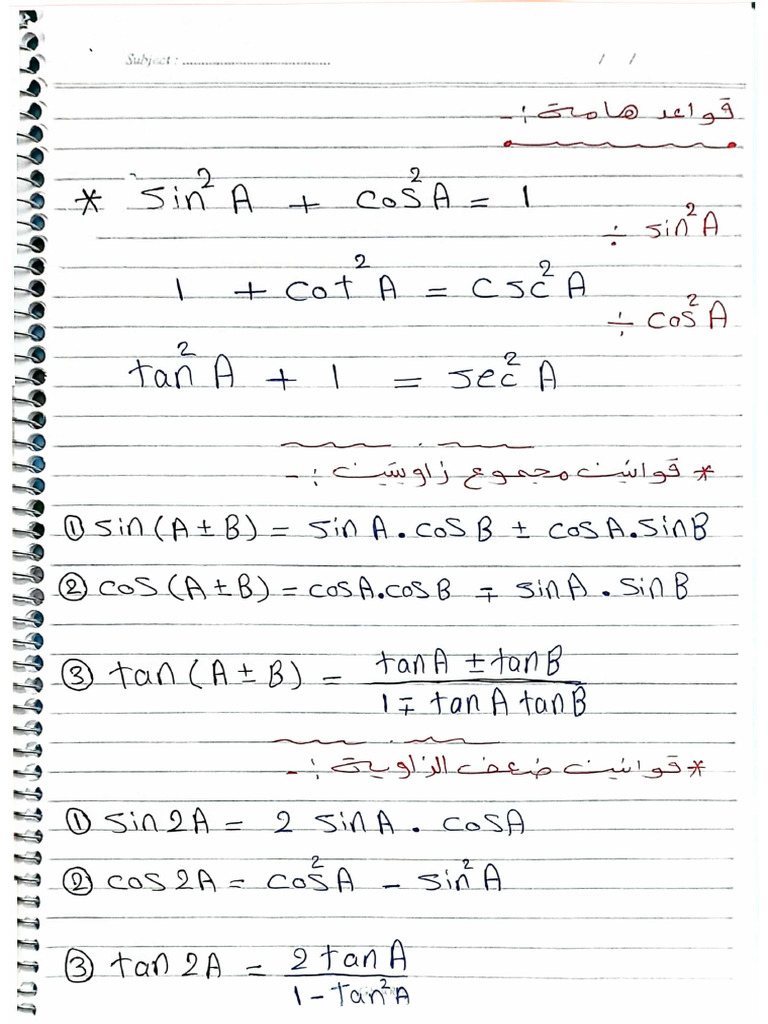 Subject : ................................ / /
قواعد هامة :-
* sin²A + cos²A = 1
÷ sin²A
1 + cot²A = csc²A
÷ cos²A
tan²A + 1 = sec²A
* قوانين مجموع زاويتين :-
① sin(A±B) = sinA.cosB ± cosA.sinB
② cos(A±B) = cosA.cosB ∓ sinA.sinB
③ tan(A±B) = (tanA ± tanB) / (1 ∓ tanA tanB)
* قوانين ضعف الزاوية :-
① sin2A = 2 sinA . cosA
② cos2A = cos²A - sin²A
③ tan2A = 2tanA / (1 - tan²A)